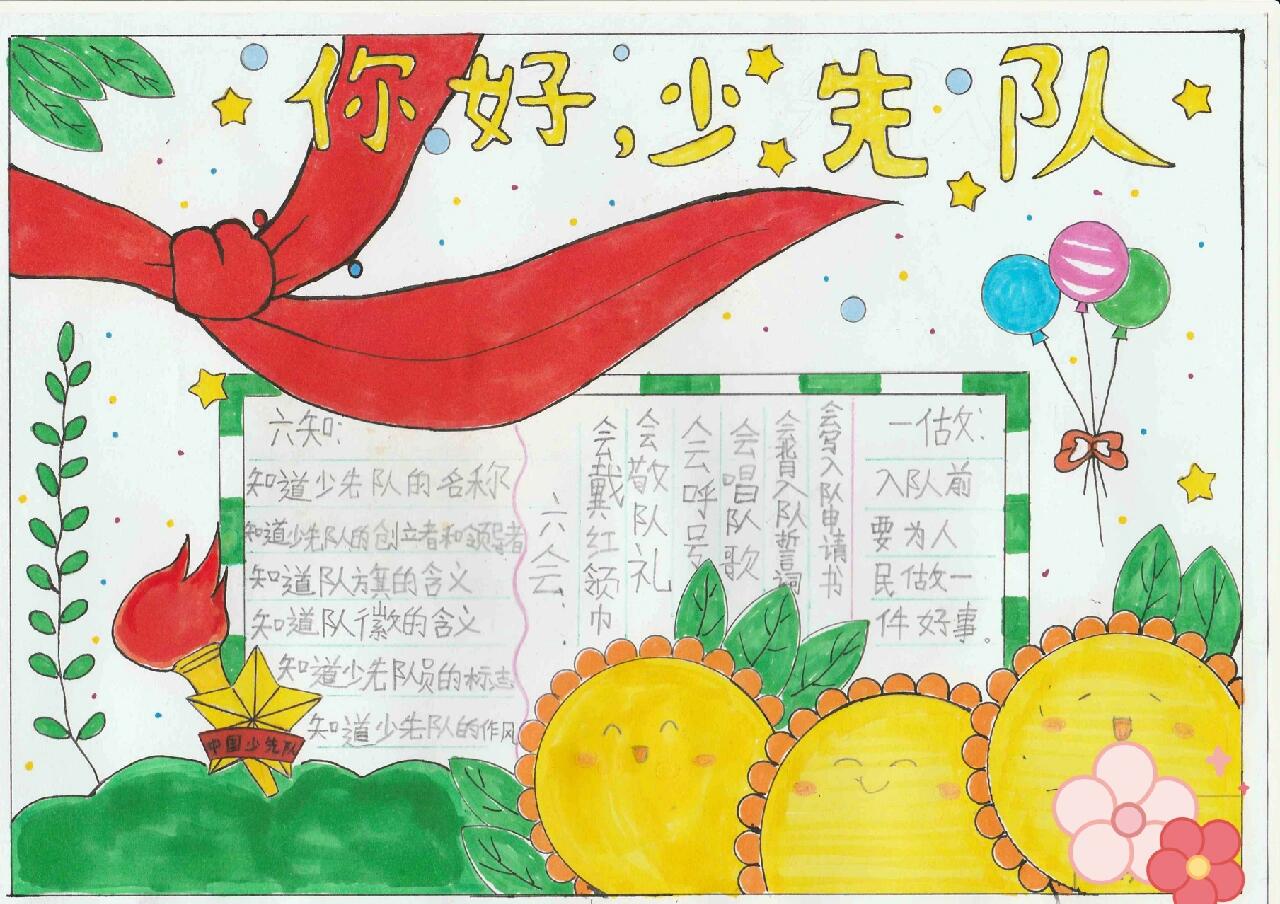 你好,少先队
六知:
知道少先队的名称
知道少先队的创立者和领导者
知道队旗的含义
知道队徽的含义
知道少先队员的标志
知道少先队的作风
六会:
会戴红领巾
会敬队礼
会呼号
会唱队歌
会背入队誓词
会写入队申请书
一做:
入队前
要为人
民做一
件好事。
中国少先队